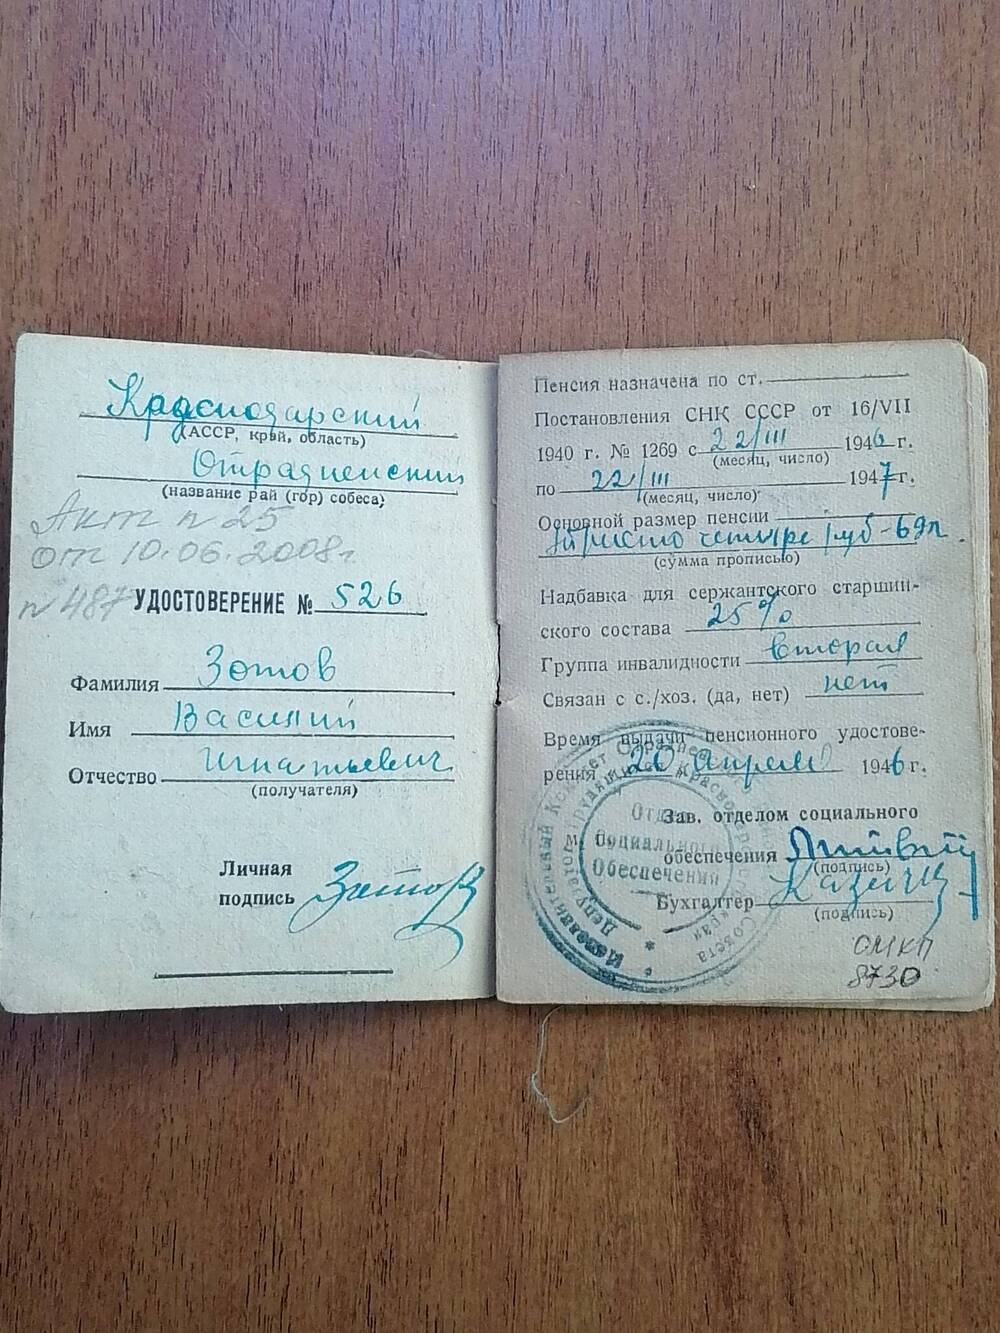 Краснодарский
(АССР, край, область)
Отрадненский
(название рай (гор) собеса)
Акт n 25
от 10.06.2008г.
n 487
УДОСТОВЕРЕНИЕ № 526
Фамилия Зотов
Имя Василий
Отчество Игнатьевич
(получателя)
Личная
подпись Зотов
Пенсия назначена по ст.
Постановления СНК СССР от 16/VII
1940 г. № 1269 с 22/III 1946 г.
(месяц, число)
по 22/III 1947 г.
(месяц, число)
Основной размер пенсии
Триста четыре руб - 69п.
(сумма прописью)
Надбавка для сержантского старшин-
ского состава 25%
Группа инвалидности вторая
Связан с с./хоз. (да, нет) нет
Время выдачи пенсионного удостове-
рения 20 апреля 1946 г.
Зав. отделом социального
обеспечения
(подпись)
Бухгалтер
(подпись)
Исполнительный Комитет
Депутатов Трудящихся
Совета
Отдел
Социального
Обеспечения
ОМКП
8730